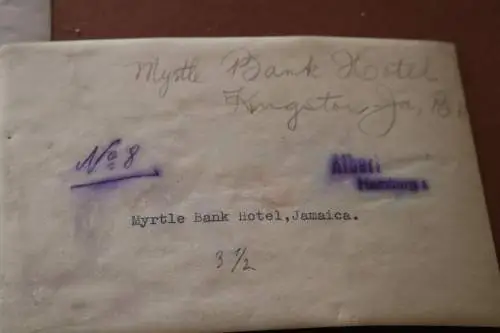 Myrtle Bank Hotel
Kingston, Ja, B.
No 8
Albert
Hamburg
Myrtle Bank Hotel, Jamaica.
3 1/2